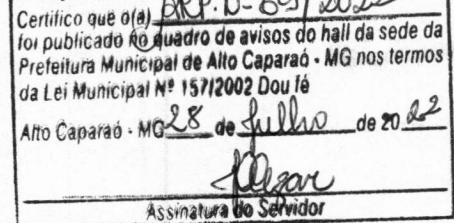 Certifico que o(a)
foi publicado no quadro de avisos do hall da sede da
Prefeitura Municipal de Alto Caparaó - MG nos termos
da Lei Municipal Nº 157/2002 Dou fé
Alto Caparaó - MG 28 de Julho de 20 22
Assinatura do Servidor